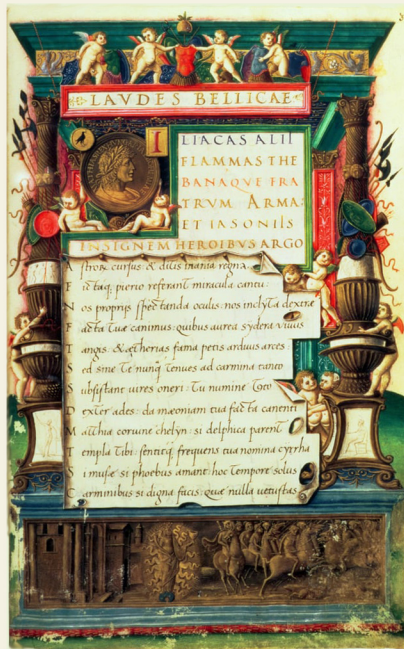 LAVDES BELLICAE
ILIACAS ALII
FLAMMAS THE
BANAQVE FRA
TRVM ARMA:
ET IASONIIS
INSIGNEM HEROIBVS ARGO
Astrorũ cursus: & ditis inania regna
Fictaq; pierio referant miracula cantu:
Nos proprijs spectanda oculis: nos inclyta dextræ
Facta Tuæ canimus: quibus aurea sydera viuus
Tangis: & ætherias fama petis arduus arces:
Sed sine Te nunq̃ tenues ad carmina tanto
Subsistant uires oneri: Tu numine Toto
Dexter ades: da mæoniam tua facta canenti
Matthia coruine chelyn: si delphica parent
Templa Tibi: sentitq; frequens tua nomina cyrrha
Si musæ si phoebus amant: hoc Tempore solus
Carminibus si digna facis: quæ nulla uetustas